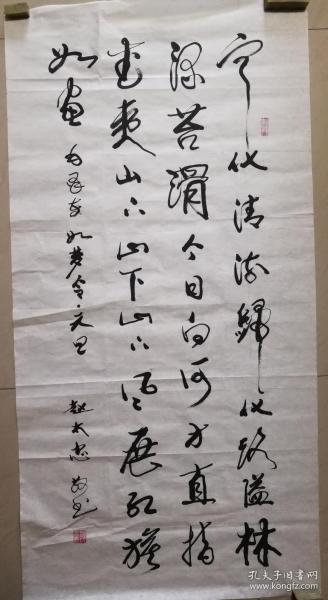 宁化清流归化路隘林
深苔滑今日向何方直指
武夷山下山下山下风展红旗
如画 毛泽东 如梦令·元旦
赵太忠 书
孔夫子旧书网
www.kongfz.com